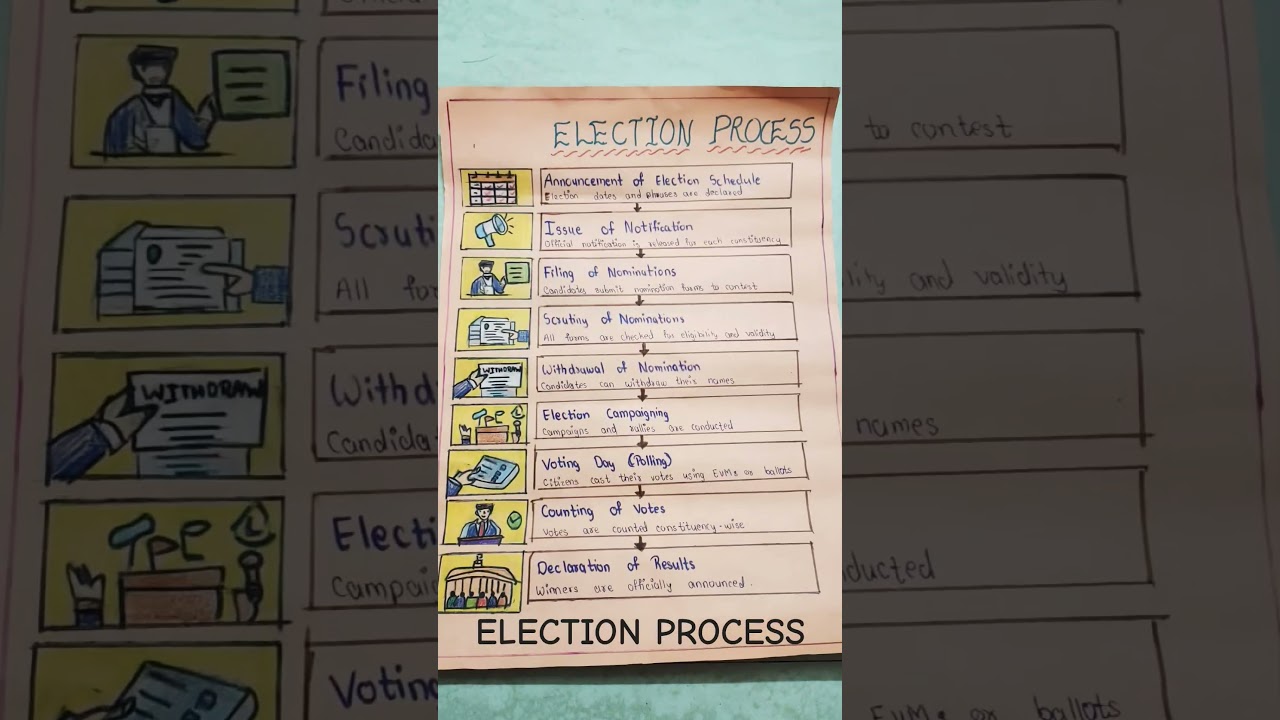 ELECTION PROCESS
Announcement of Election Schedule
Election dates and phauses are declared
Issue of Notification
Official notification is released for each constituency
Filing of Nominations
Candidates submit nomination forms to contest
Scrutiny of Nominations
All forms are checked for eligibility and validity
WITHDRAW
Withdrawal of Nomination
Candidates can withdraw their names
Election Campaigning
Campaigns and rallies are conducted
Voting Day (Polling)
Citizens cast their votes using EVMs or ballots
Counting of Votes
Votes are counted constituency-wise
Declaration of Results
Winners are officially announced.
ELECTION PROCESS
Filing
Candida
to contest
Scruti
All for
lity and validity
WITHDRAW
Withd
Candida
names
Electi
Campaig
ducted
Voting
EVMs or ballots